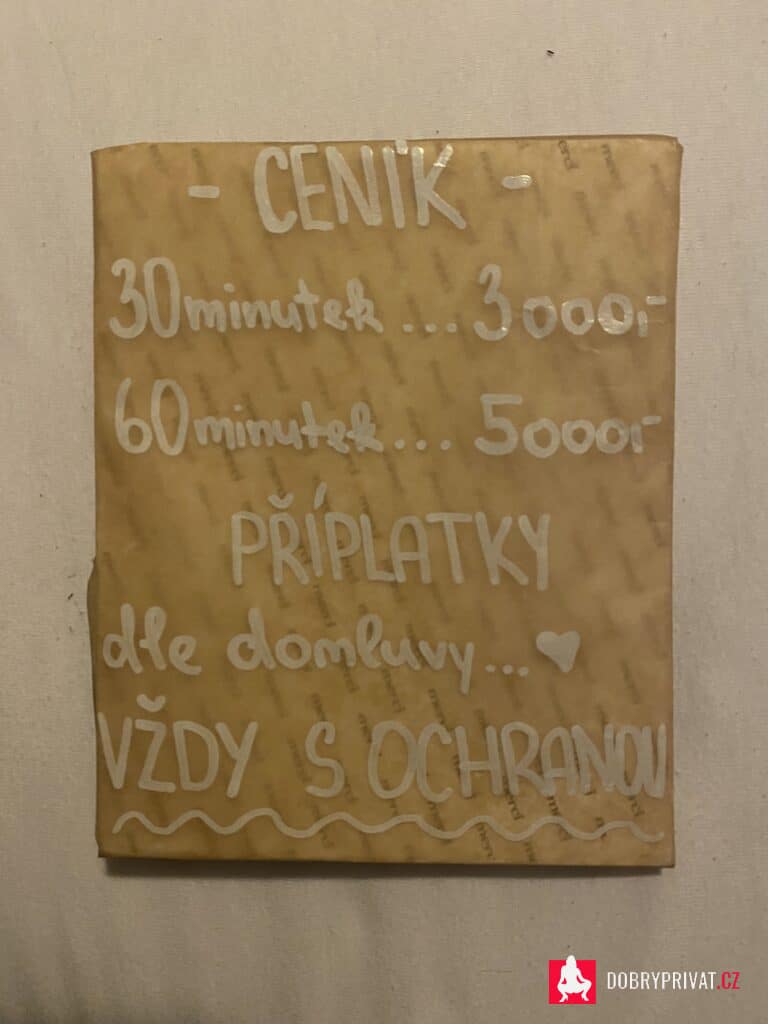 - CENÍK -
30 minutek ... 3000,-
60 minutek ... 5000,-
PŘÍPLATKY
dle domluvy... ♥
VŽDY S OCHRANOU
merci
DOBRYPRIVAT.CZ